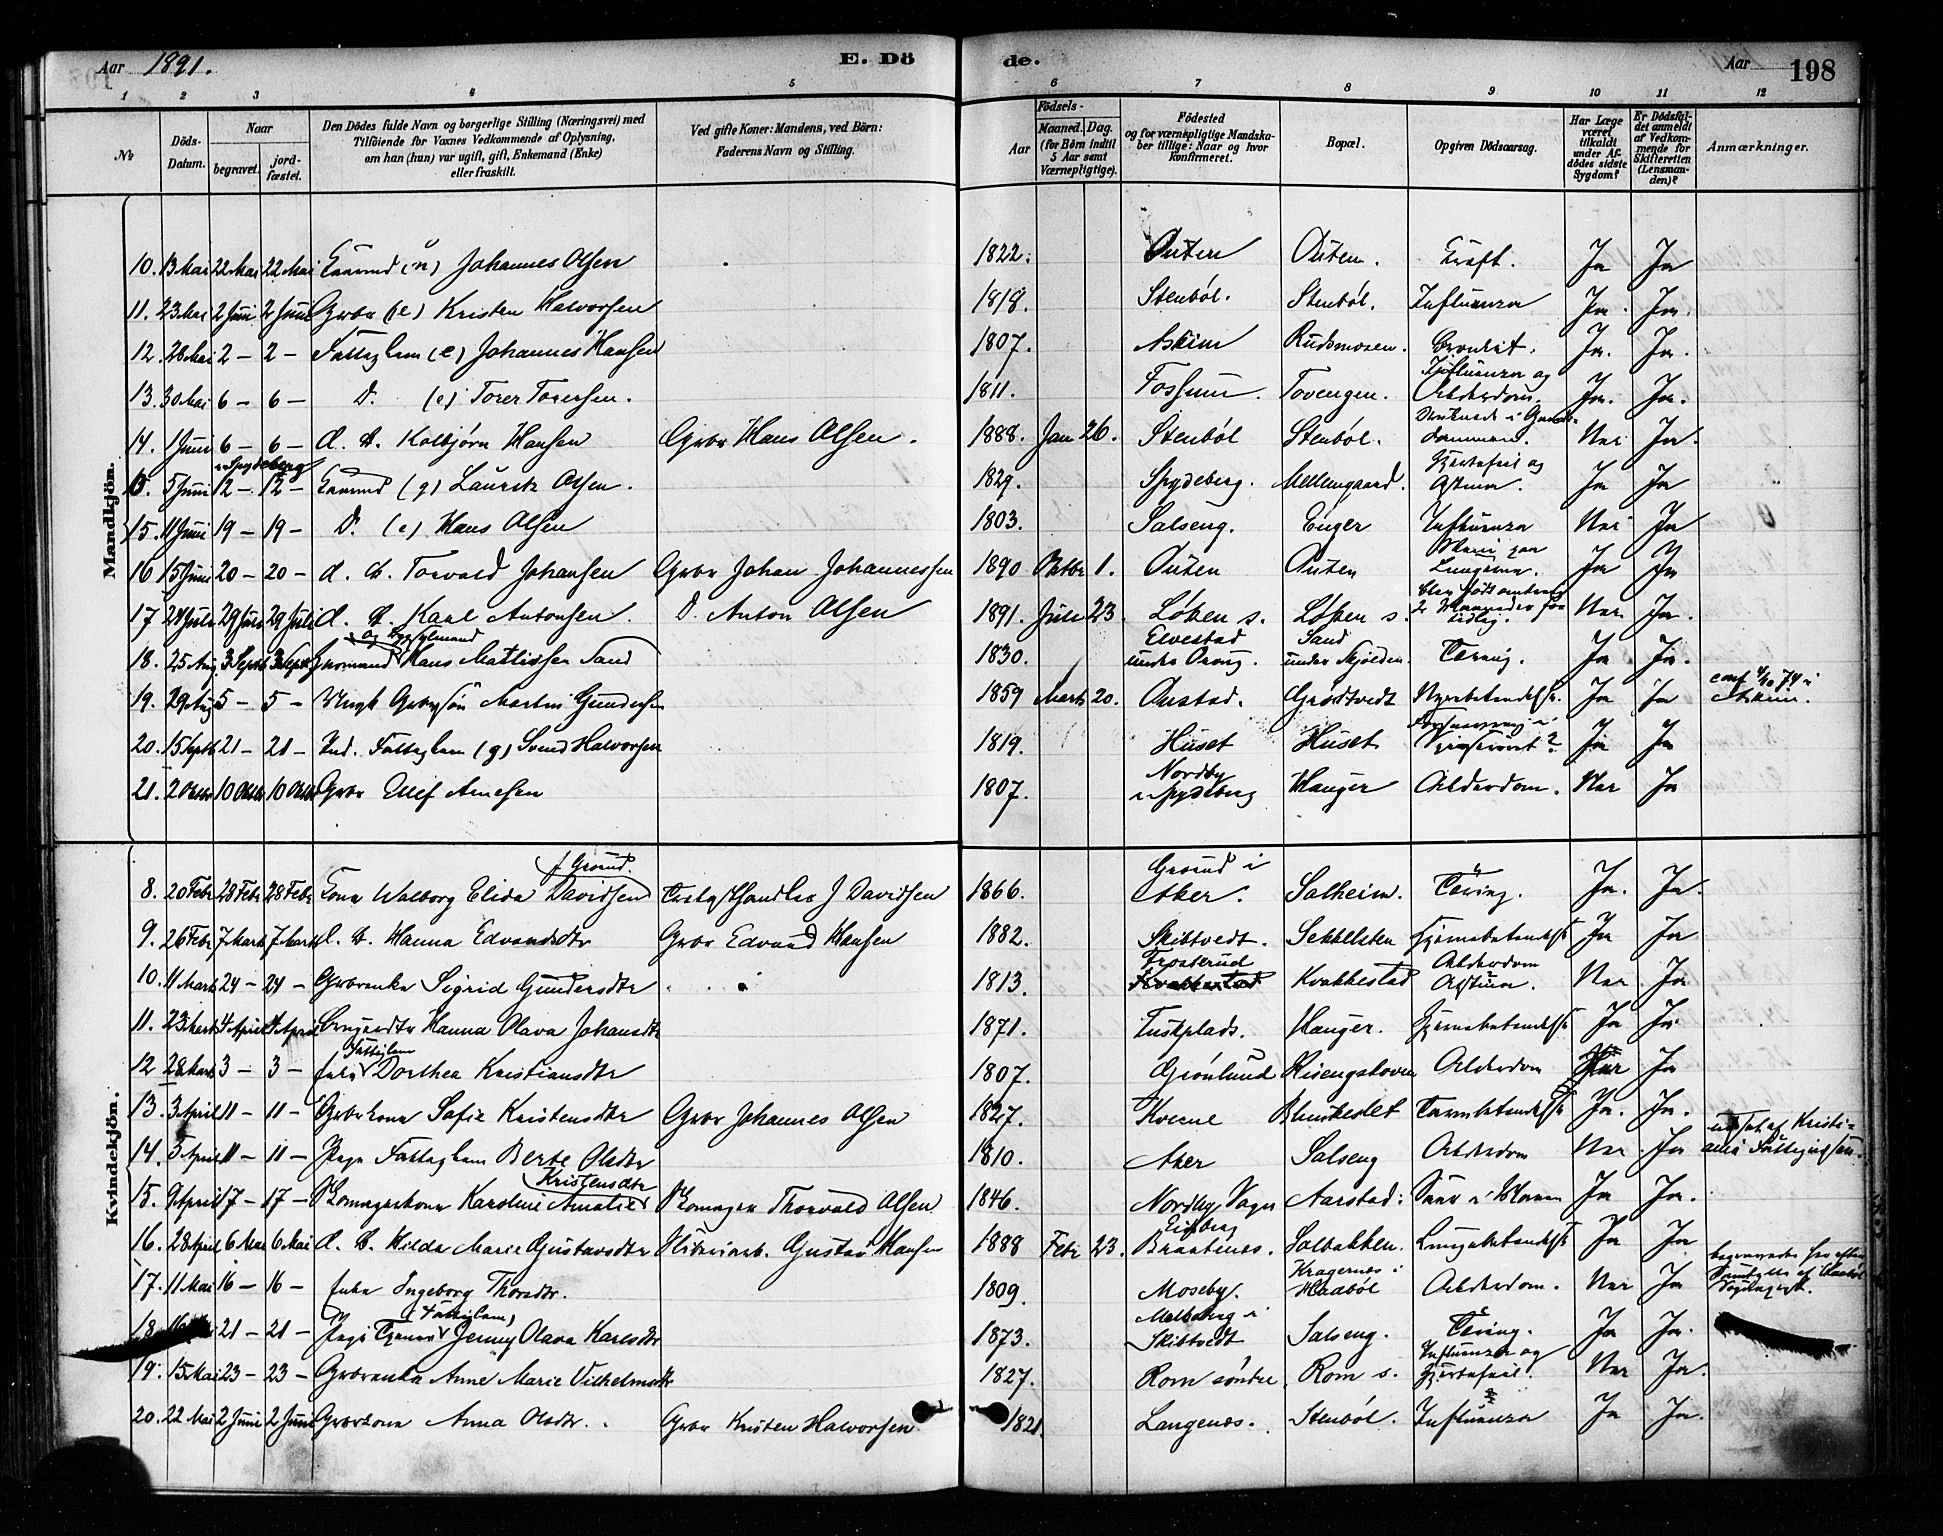 Aar 1891.
E. Dö
de.
Aar
198
1 2 3 4 5 6 7 8 9 10 11 12
No
Döds-Datum.
Naar
begravet.
jord-fæstet.
Den Dödes fulde Navn og borgerlige Stilling (Næringsvei) med
Tilföiende for Voxnes Vedkommende af Oplysning,
om han (hun) var ugift, gift, Enkemand (Enke)
eller fraskilt.
Ved gifte Koner: Mandens, ved Börn:
Faderens Navn og Stilling.
Födsels-
Aar
Maaned. Dag.
(for Börn indtil
5 Aar samt
Værnepligtige).
Födested
og for værnepligtige Mandska-
ber tillige: Naar og hvor
Konfirmeret.
Bopæl.
Opgiven Dödsaarsag.
Har Læge
været
tilkaldt
under Af-
dödes sidste
Sygdom?
Er Dödsfal-
det anmeldt
af Vedkom-
mende for
Skifteretten
(Lensman-
den)?
Anmærkninger.
Mandkjön.
10. 13 Mai 22 Mai 22 Mai (u) Johannes Olsen 1822. Outen Outen. Kræft. Ja Ja
11. 23 Mai 2 Juni 2 Juni Grbr (e) Kristen Halvorsen 1818. Stenböl. Stenböl. Influenza Ja. Ja.
12. 28 Mai 2 — 2 — Fattiglem (e) Johannes Hansen 1807. Askim Rudsmosen. Bronkit. Ja. Ja.
13. 30 Mai 6 — 6 — D. (e) Torer Torersen. 1811. Fossum. Tovengen. Influenza og Alderdom. Ja. Ja.
14. 1 Juni 6 — 6 — d. b. Kolbjørn Hansen Grbr Hans Olsen. 1888. Jan 26. Stenböl Stenböl. Druknede i dammen. Nei Ja.
i Spydeberg
5 Juni 12 — 12 — (g) Lauritz Olsen. 1829. Spydeberg. Mellemgaard. Hjertefeil og Astma. Ja Ja
15. 11 Juni 19 — 19 — D. (e) Hans Olsen 1803. Salseng. Enger Influenza Nei Ja
16 15 Juni 20 — 20 — d. b. Torvald Johansen Grbr Johan Johannessen 1890 Oktbr 1. Outen Outen Ja Ja
17. 24 Juli 29 Juli 29 Juli d. b. Karl Antonsen. D. Anton Olsen 1891. Juli 23. Løken s. Løken s. blev født omtrent 2 Maaneder for tidlig. Nei Ja.
18. 25 Aug 3 Septb 3 Septb Hans Mathisen Sand 1830. Elvestad under Sand under Skjolden. Tæring. Ja Ja.
19. 29 Aug 5 — 5 — Ungk Grbrsön Martin Gundersen 1859 Marts 20. Onstad. Grødtvedt Nyrebetændelse. Ja Ja conf 4/10 74 i Askim.
20. 15 Septb 21 — 21 — Ind. Fattiglem (g) Svend Halvorsen 1819. Huset Huset Ja Ja
21. 2 Oktbr 10 Oktbr 10 Oktbr Grbr Ellef Arnesen 1807. Nordby i Spydeberg Hauger Alderdom. Nei Ja
Kvindekjön.
8. 20 Febr 28 Febr 28 Febr Kone Walborg Elida Davidsen f Grorud. J Davidsen 1866. Grorud i Aker. Solheim. Tæring. Ja. Ja.
9. 26 Febr 7 Marts 7 Marts d. b. Hanna Edvardsdtr Grbr Edvard Hansen 1882. Skibtvedt. Sekkelsten Hjernebetændelse Ja Ja
10. 11 Marts 24 — 24 — Grbrenke Sigrid Gundersdtr 1813. Frosterud Kvakkestad Alderdom Astma. Nei Ja
11. 23 Marts 4 April 4 April Hanna Olava Johansdtr 1871. Tuskplads. Hauger. Hjernebetændelse Ja Ja
12 28 Marts 3 — 3 — Enke Fattiglem Dorthea Kristiansdtr 1807. Grönlund Alderdom Ja
13. 3 April 11 — 11 — Grbrkone Sofie Kristensdtr Grbr Johannes Olsen 1827. Kverne Tarmbetændelse Ja. Ja.
14. 5 April 11 — 11 — Pige Fattiglem Berte Olsdtr 1810. Aker Salseng Alderdom Nei Ja
15. 9 April 17 — 17 — Skomagerkone Karoline Amalie Kristensdtr Skomager Thorvald Olsen 1846. Nordby Aarstad. Saar i Maven Ja Ja.
16. 28 April 6 Mai 6 Mai d. b. Hilda Marie Gustavsdtr Gustav Hansen 1888 Febr 23. Eidsberg Braatenes. Solbakken. Lungebetændelse Ja Ja
17. 11 Mai 16 — 16 — Enke Ingeborg Thorsdtr. 1809. Moseby. Kragernes i Haaböl Alderdom. Nei Ja
18 21 — 21 — Pige Fattiglem Jenny Olava Karlsdtr 1873. i Skibtvedt Salseng. Tæring. Ja Ja.
19. 15 Mai 23 — 23 — Grbrenke Anne Marie Vilhelmsdtr 1827. Rom søndre Rom s. Influenza og Hjertefeil. Nei Ja.
20. 22 Mai 2 Juni 2 Juni Grbrkone Anna Olsdtr. Grbr Kristen Halvorsen 1821. Langenæs. Stenböl. Influenza Ja Ja.